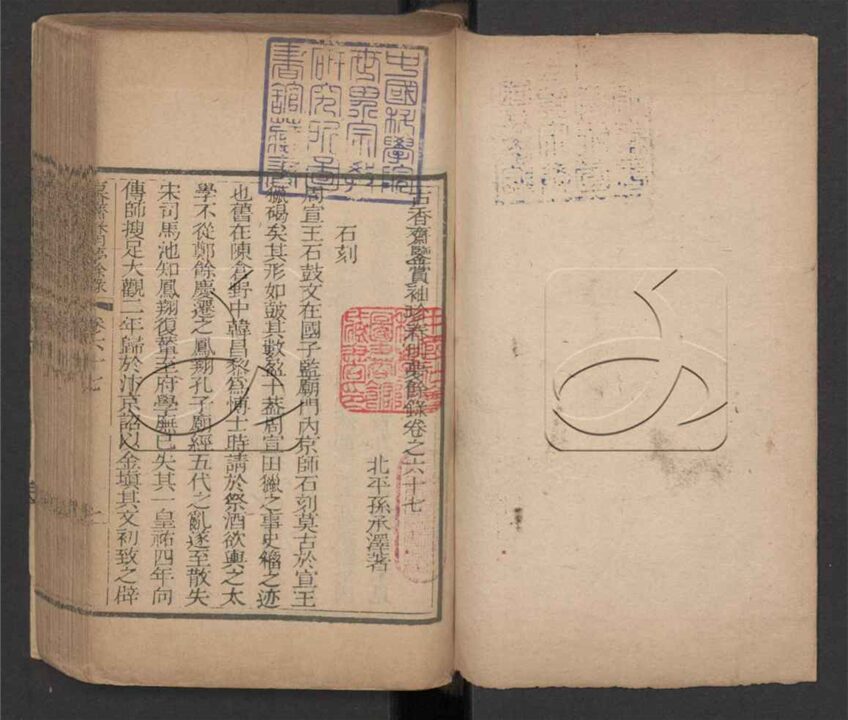 中國科學院
世界宗教
研究所圖
書館藏書
古香齋鑒賞袖珍春明夢餘錄卷之六十七
北平孫承澤著
石刻
周宣王石鼓文在國子監廟門內京師石刻莫古於宣王
獵碣矣其形如鼓其數盈十蓋周宣田獵之事史籀之迹
也舊在陳倉野中韓昌黎爲博士時請於祭酒欲輿之太
學不從鄭餘慶遷之鳳翔孔子廟經五代之亂遂至散失
宋司馬池知鳳翔復輦至府學廡已失其一皇祐四年向
傳師搜足大觀二年歸於汴京詔以金塡其文初致之辟
卷六十七